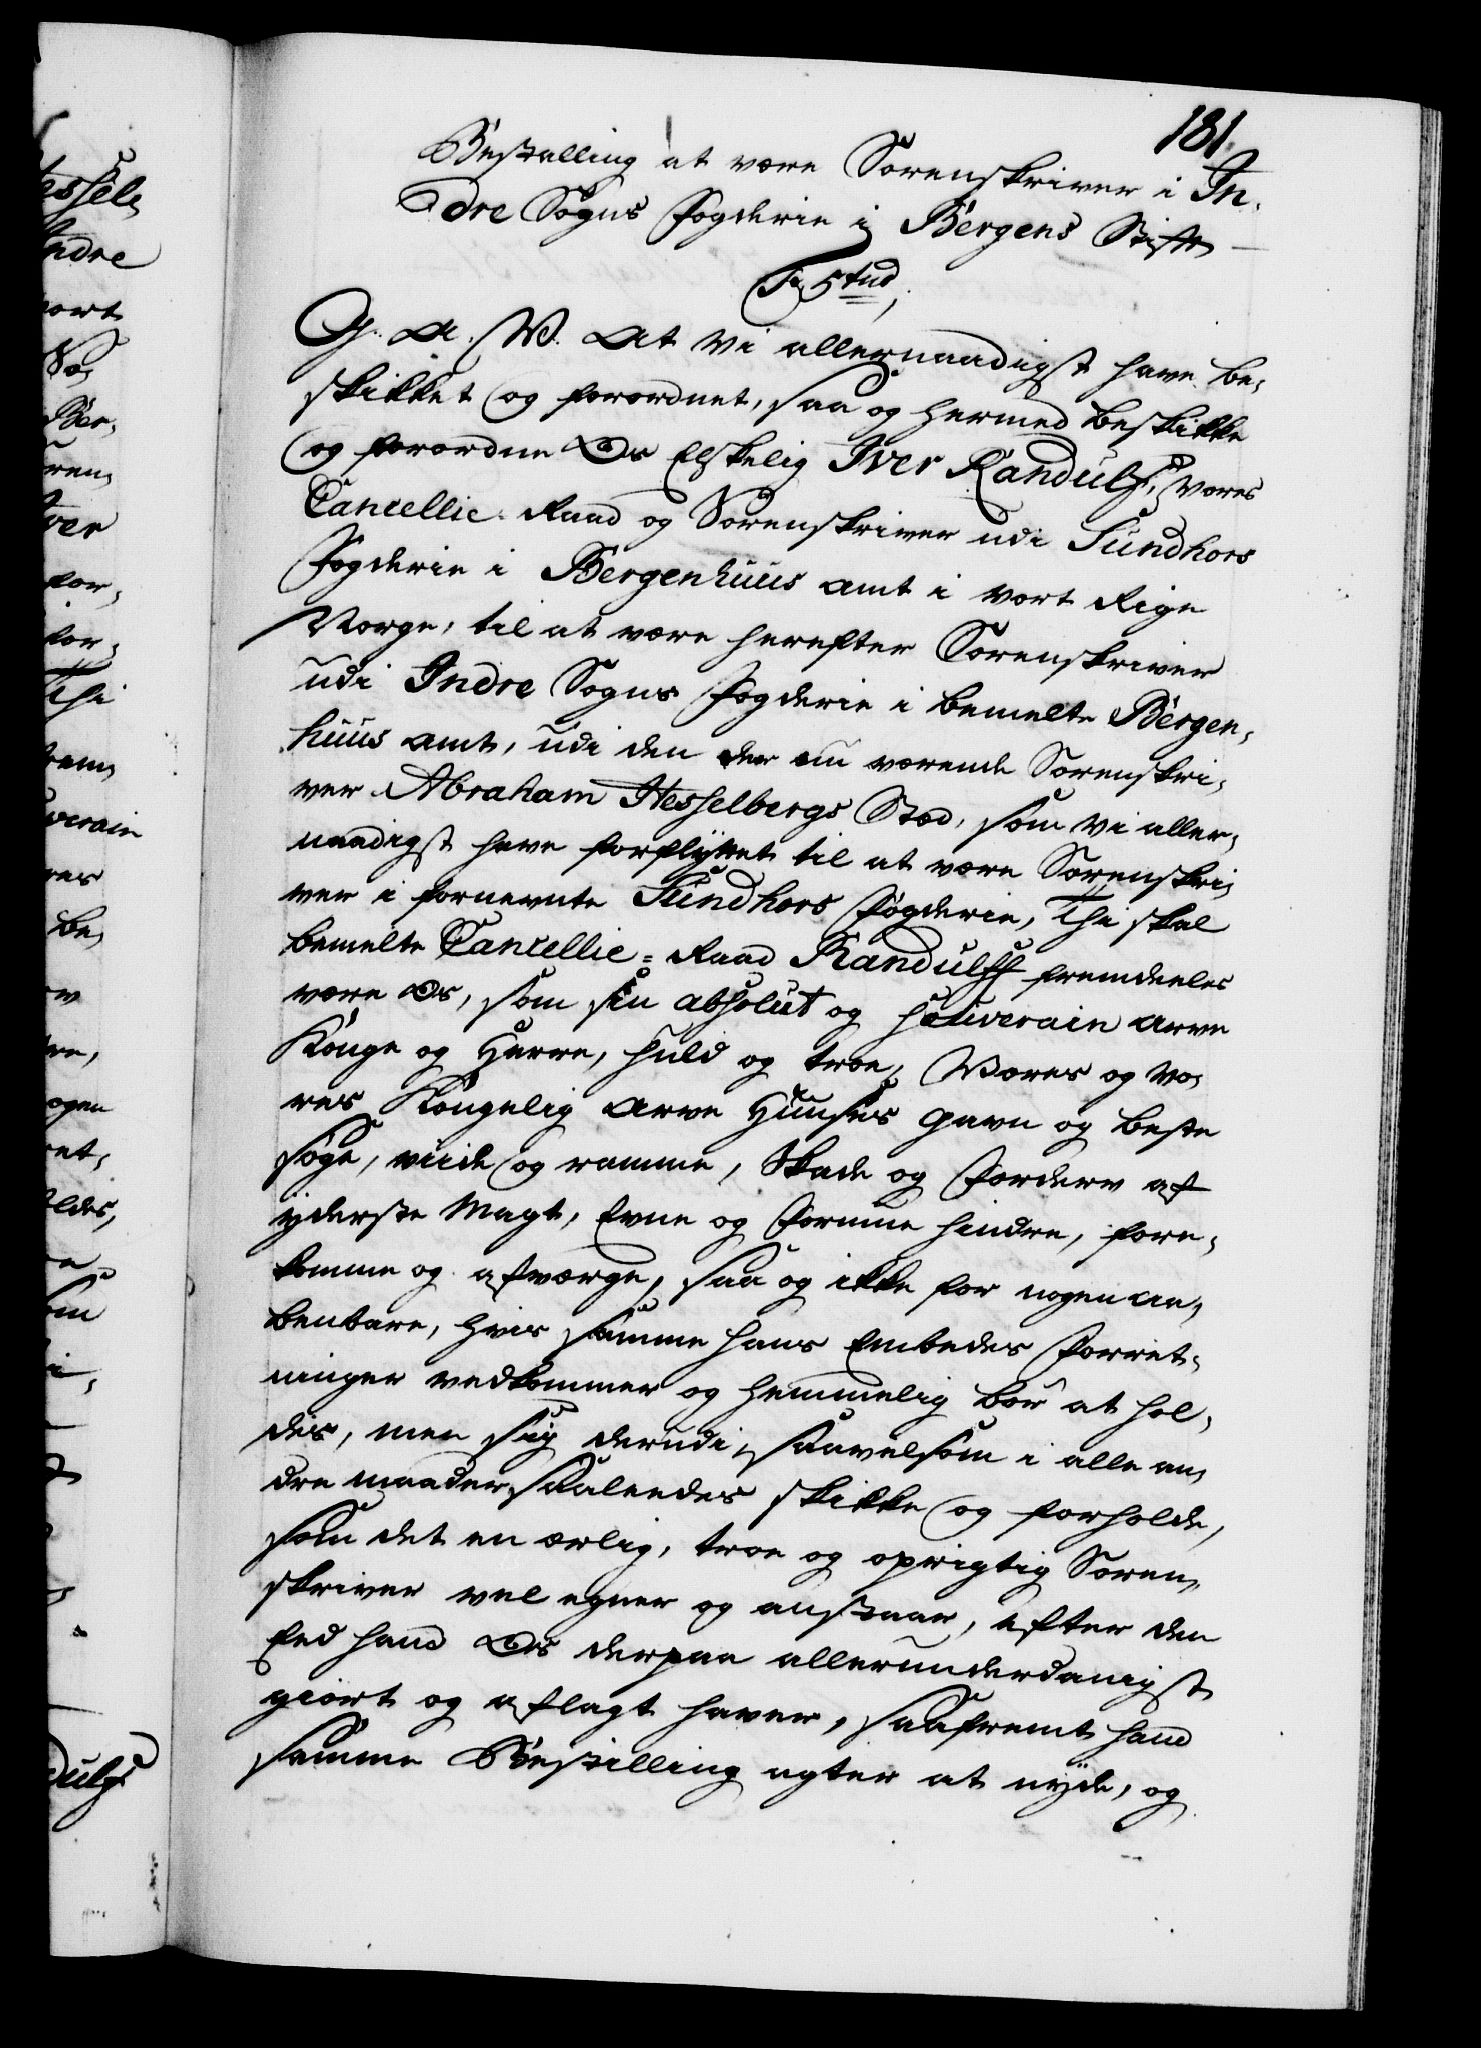 181.
Bestalling at være Sorenskriver i In-
dre Sogns Fogderie i Bergens Stift
G. A. W. At Vi allernaadigst have be-
skikket og forordnet, saa og hermed beskikke
og forordne Os Elskelig Iver Randulff, Vores
Cancellie-Raad og Sorenskriver udi Sundhors
Fogderie i Bergenhuus Amt i vort Rige
Norge, til at være herefter Sorenskriver
udi Indre Sogns Fogderie i bemelte Bergen-
huus Amt, udi den der nu værende Sorenskri-
ver Abraham Hesselbergs Sted, som Vi aller-
naadigst have forflyttet til at være Sorenskri-
ver i fornevnte Sundhors Fogderie, Thi skal
bemelte Cancellie-Raad Randulff fremdeeles
være Os, som sin absolut og souverain Arve
Konge og Herre, huld og troe, Vores og Vo-
res Kongelig Arve Huuses gavn og beste
søge, viide og ramme, Skade og Forderv af
yderste Magt, Evne og Formue hindre, fore-
komme og afværge, saa og ikke for nogen aa-
benbare, hvis samme hans Embedes Forret-
ninger vedkommer og hemmelig bør at hol-
des, men sig derudi, saavelsom i alle an-
dre maader, saaledes skikke og forholde,
som det en ærlig, troe og oprigtig Soren-
skriver vel egner og anstaar, efter den
Eed hand Os derpaa allerunderdanigst
giort og aflagt haver, saafremt hand
samme Bestilling agter at nyde, og